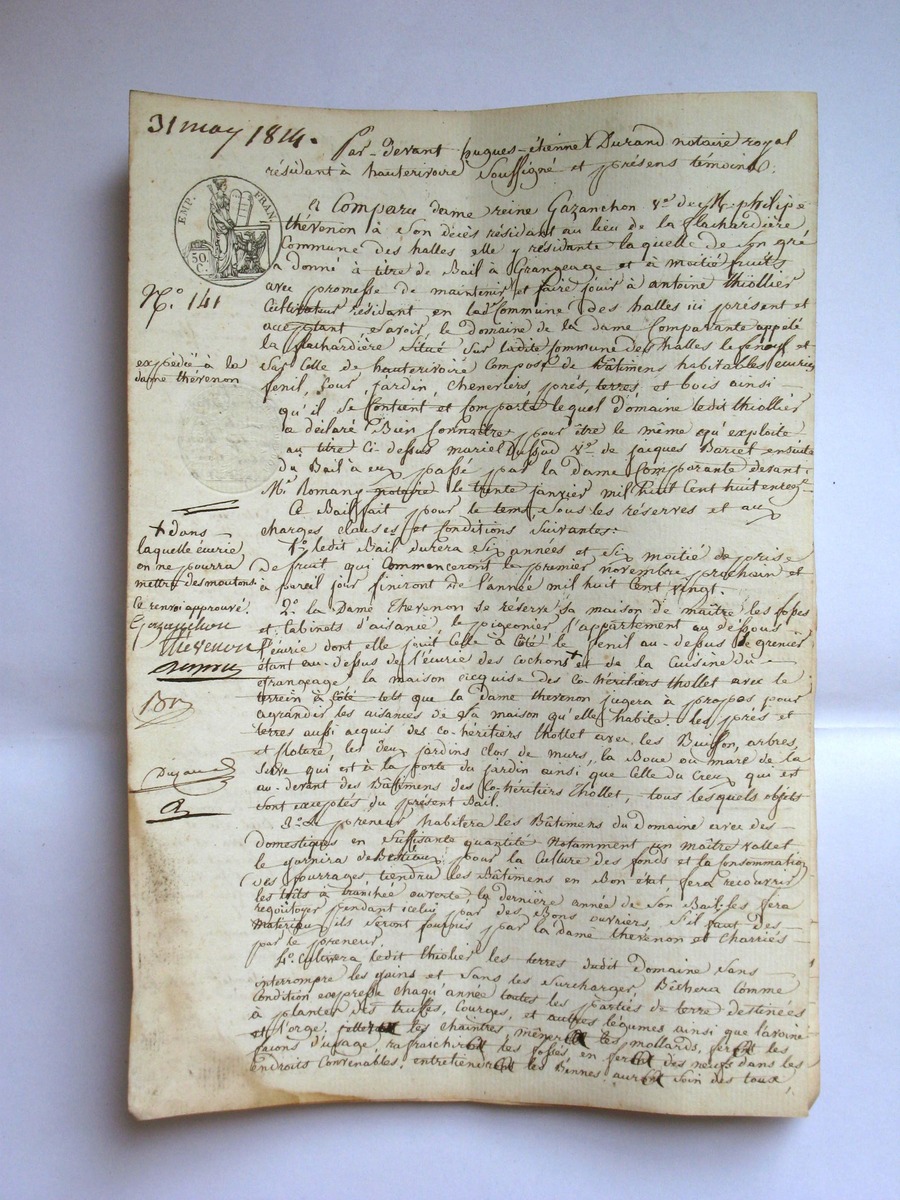 31 may 1814.
Par-devant hugues-étienne Durand notaire royal
résidant à hauterivoire Soussigné et présens témoins.
EMP. FRAN.
50. C.
a Comparu dame reine Gazanchon Ve. de philipe
thévenon à son décès résidant au lieu de la flachardière
Commune des halles elle y résidante laquelle de son gré
a donné à titre de Bail à Grangeage et à moitié fruits
avec promesse de maintenir et faire jouir à antoine thiollier
Cultivateur résidant en ladte Commune des halles ici présent et
acceptant, savoir le domaine de la dame Comparante appelé
la flachardière situé sur ladite Commune des halles le fenouil et
sur Celle de hauterivoire Composé de Bâtimens habitables écuries
fenil, Cour, jardin, cheneviers, prés, terres, et bois ainsi
qu'il se Contient et Comporte lequel domaine ledit thiollier
a déclaré Bien Connaître pour être le même qu'exploite
au titre Ci-dessus Dussud Ve. de jacques Barcet ensuite
du Bail à eux passé par la dame Comparante devant
Me. Romany notaire le trente janvier mil huit Cent huit
Ce Bail fait pour le tems, sous les réserves et aux
charges clauses et conditions suivantes:
N.º 141
expédié à la
dame thévenon
1.º ledit Bail durera six années et six moitié de prise
de fruit qui Commenceront le premier novembre prochain et
à pareil jour finiront de l'année mil huit Cent vingt.
2.º la Dame thevenon se réserve sa maison de maître les fosses
et Cabinets d'aisance, le pigeonier l'appartement au dessous
l'écurie dont elle jouit Celle à Côté le fenil au-dessus le grenier
étant au-dessus de l'écurie des cochons + et de la Cuisine du
grangeage la maison acquise des Co-héritiers thollet avec le
terrein à Côté tels que la dame thevenon jugera à propos pour
agrandir les aisances de sa maison qu'elle habite, les prés et
terres aussi acquis des co-héritiers thollet avec les Buisson, arbres,
et cloture, les deux jardins clos de murs, la Boue ou mare de la
serve qui est à la porte du jardin ainsi que Celle du Creux qui est
au-devant des Bâtimens des Co-héritiers thollet, tous lesquels objets
sont exceptés du présent Bail.
+ dans
laquelle écurie
on ne pourra
mettre des moutons.
le renvoi approuvé.
Gazanchon
thevenon
Dujaud
3.º Le preneur habitera les Bâtimens du Domaine avec des
domestiques en suffisante quantité Notamment un maître vallet
le garnira de Bestiaux pour la Culture des fonds et la Consommation
des fourrages tiendra les Bâtimens en Bon état fera recouvrir
les toits à tranchée ouverte, la dernière année de son Bail, les fera
regoûtoyer pendant icelui par des Bons ouvriers, s'il faut des
materiau ils seront fournis par la dame thévenon et charriés
par le preneur
4.º Cultivera ledit thiolier les terres dudit Domaine sans
interrompre les gains et sans les surcharger Bêchera Comme
Condition expresse chaqu'année toutes les parties de terre destinées
à planter des truffes, Courges, et autres légumes ainsi que l'avoine
et l'orge, les chaintres, même les mollards, fera les
façons d'usage, rafraichira les fossés, en fera des neufs dans les
endroits Convenables, entretiendra les Bennes aura soin des tous